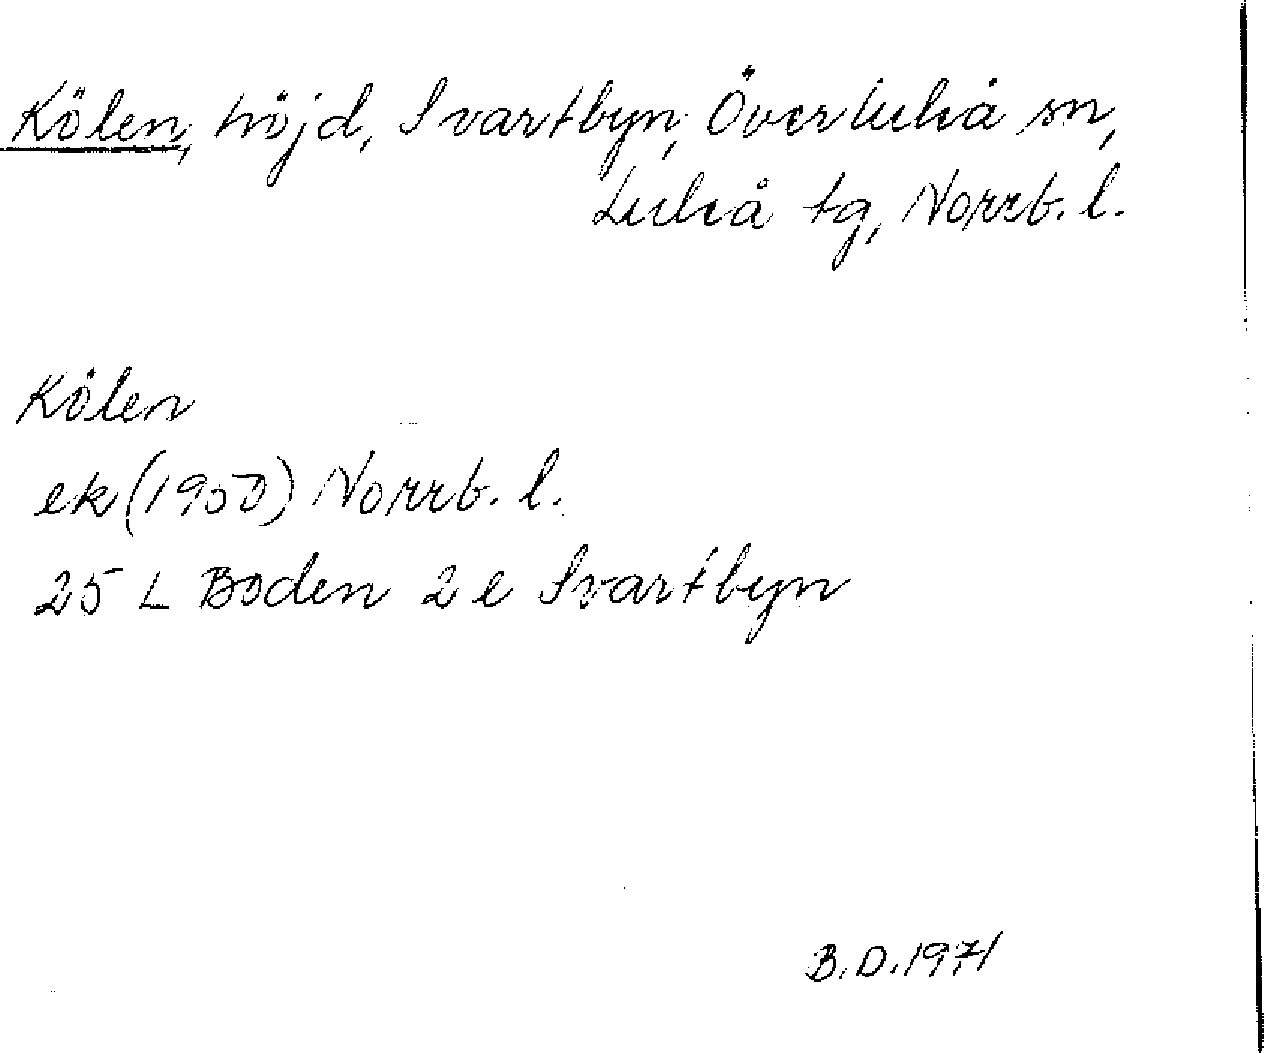 Kölen, höjd, Svartbyn, Överluleå sn,
Luleå tg, Norrb. l.
Kölen
ek (1950) Norrb. l.
25 L Boden 2 e Svartbyn
B.D. 1971